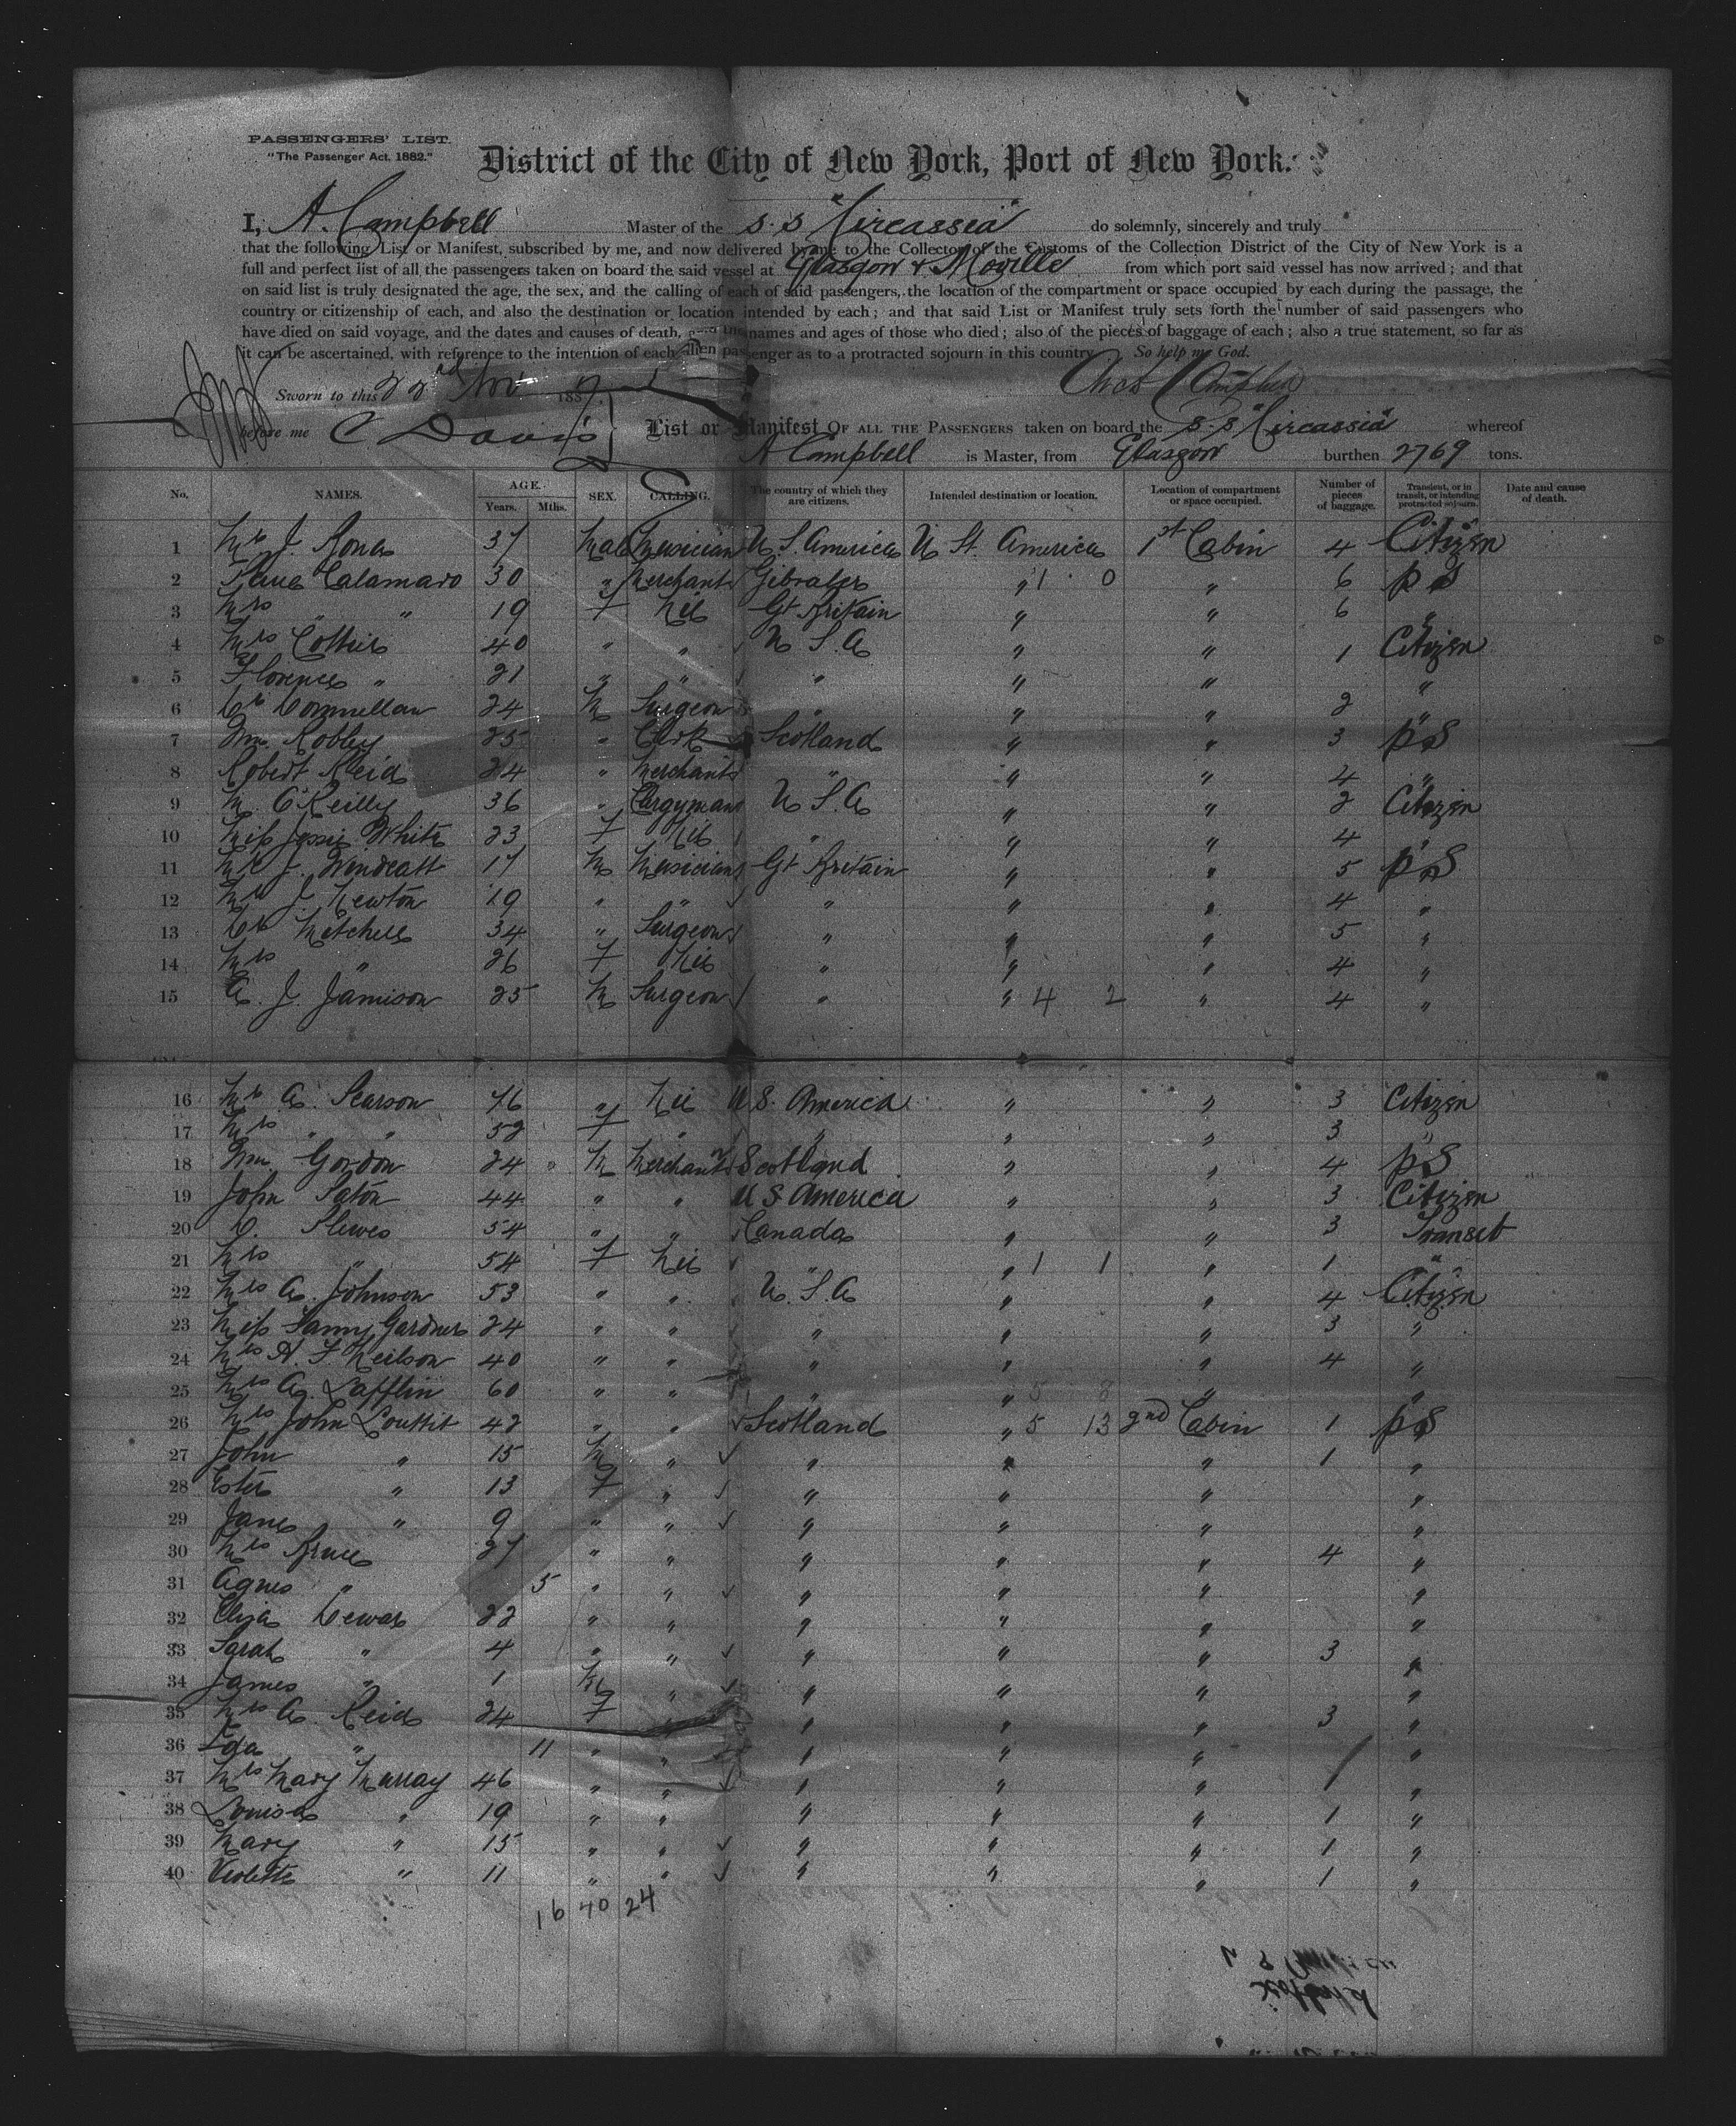 PASSENGERS' LIST.
"The Passenger Act, 1882."
District of the City of New York, Port of New York.
I, A. Campbell Master of the S.S "Circassia" do solemnly, sincerely and truly
that the following List or Manifest, subscribed by me, and now delivered by me to the Collector of the Customs of the Collection District of the City of New York is a
full and perfect list of all the passengers taken on board the said vessel at Glasgow & Moville from which port said vessel has now arrived; and that
on said list is truly designated the age, the sex, and the calling of each of said passengers, the location of the compartment or space occupied by each during the passage, the
country or citizenship of each, and also the destination or location intended by each; and that said List or Manifest truly sets forth the number of said passengers who
have died on said voyage, and the dates and causes of death, and the names and ages of those who died; also of the pieces of baggage of each; also a true statement, so far as
it can be ascertained, with reference to the intention of each alien passenger as to a protracted sojourn in this country. So help me God.
Sworn to this 22nd Nov 1887 Arch Campbell
before me C Davis List or Manifest OF ALL THE PASSENGERS taken on board the S.S "Circassia" whereof
A Campbell is Master, from Glasgow burthen 2769 tons.
No. NAMES. AGE. Years. Mths. SEX. CALLING. The country of which they are citizens. Intended destination or location. Location of compartment or space occupied. Number of pieces of baggage. Transient, or in transit, or intending protracted sojourn. Date and cause of death.
1 Mr J. 37 Male Musician U.S. America U St. America 1st Cabin 4 Citizen
2 Calamaro 30 " Merchant Gibralter " 1 0 " 6 p S
3 Mrs " " 19 F Nil Gt Britain " " 6 "
4 Mrs 40 " " U.S.A " " 1 Citizen
5 Florence " 21 " " " " " "
6 Dr 24 M Surgeon " " " 2 "
7 Wm. Robley 25 " Clerk Scotland " " 3 p S
8 Robert Reid 24 " Merchant " " " 4 "
9 M. O'Reilly 36 " Clergyman U.S.A " " 2 Citizen
10 Miss Jessie White 23 F Nil " " " 4 "
11 Mr J. Windeatt 17 M Musician Gt Britain " " 5 p S
12 Mr J. Newton 19 " " " " " 4 "
13 Dr Mitchell 34 " Surgeon " " " 5 "
14 Mrs " 26 F Nil " " " 4 "
15 A. J. Jamison 25 M Surgeon " " 4 2 " 4 "
16 Mr A. Pearson 76 " Nil U.S. America " " 3 Citizen
17 Mrs " " 52 F " " " " 3 "
18 Wm. Gordon 24 M Merchant Scotland " " 4 p S
19 John Paton 44 " " U S America " " 3 Citizen
20 D. 54 " " Canada " " 3 Transit
21 Mrs " 54 F Nil " " 1 1 " 1 "
22 Mrs A. Johnson 53 " " U.S.A " " 4 Citizen
23 Miss Fanny Gardner 24 " " " " " 3 "
24 Mrs A. F. Neilson 40 " " " " " 4 "
25 Mrs A. Lafflin 60 " " " " 5 8 " "
26 Mrs John Louttit 42 " " Scotland " 5 13 2nd Cabin 1 p S
27 John " 15 M " " " " 1 "
28 Ester " 13 F " " " " "
29 Jane " 9 " " " " " "
30 Mrs Bruce 27 " " " " " 4 "
31 Agnes " 5 " " " " " "
32 Eliza Dewar 22 " " " " " "
33 Sarah " 4 " " " " " 3 "
34 James " 1 M " " " " "
35 Mrs A. Reid 24 F " " " " 3 "
36 Ida " 11 " " " " " "
37 Mrs Mary Murray 46 " " " " " 1 "
38 Louisa " 19 " " " " " 1 "
39 Mary " 15 " " " " " 1 "
40 Violette " 11 " " " " " 1 "
16 40 24